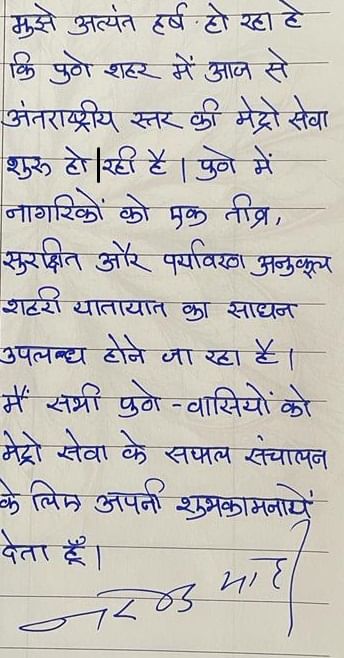 मुझे अत्यंत हर्ष हो रहा है
कि पुणे शहर में आज से
अंतराष्ट्रीय स्तर की मेट्रो सेवा
शुरू हो रही है । पुणे में
नागरिकों को एक तीव्र,
सुरक्षित और पर्यावरण अनुकूल
शहरी यातायात का साधन
उपलब्ध होने जा रहा है ।
मैं सभी पुणे - वासियों को
मेट्रो सेवा के सफल संचालन
के लिए अपनी शुभकामनायें
देता हूँ ।